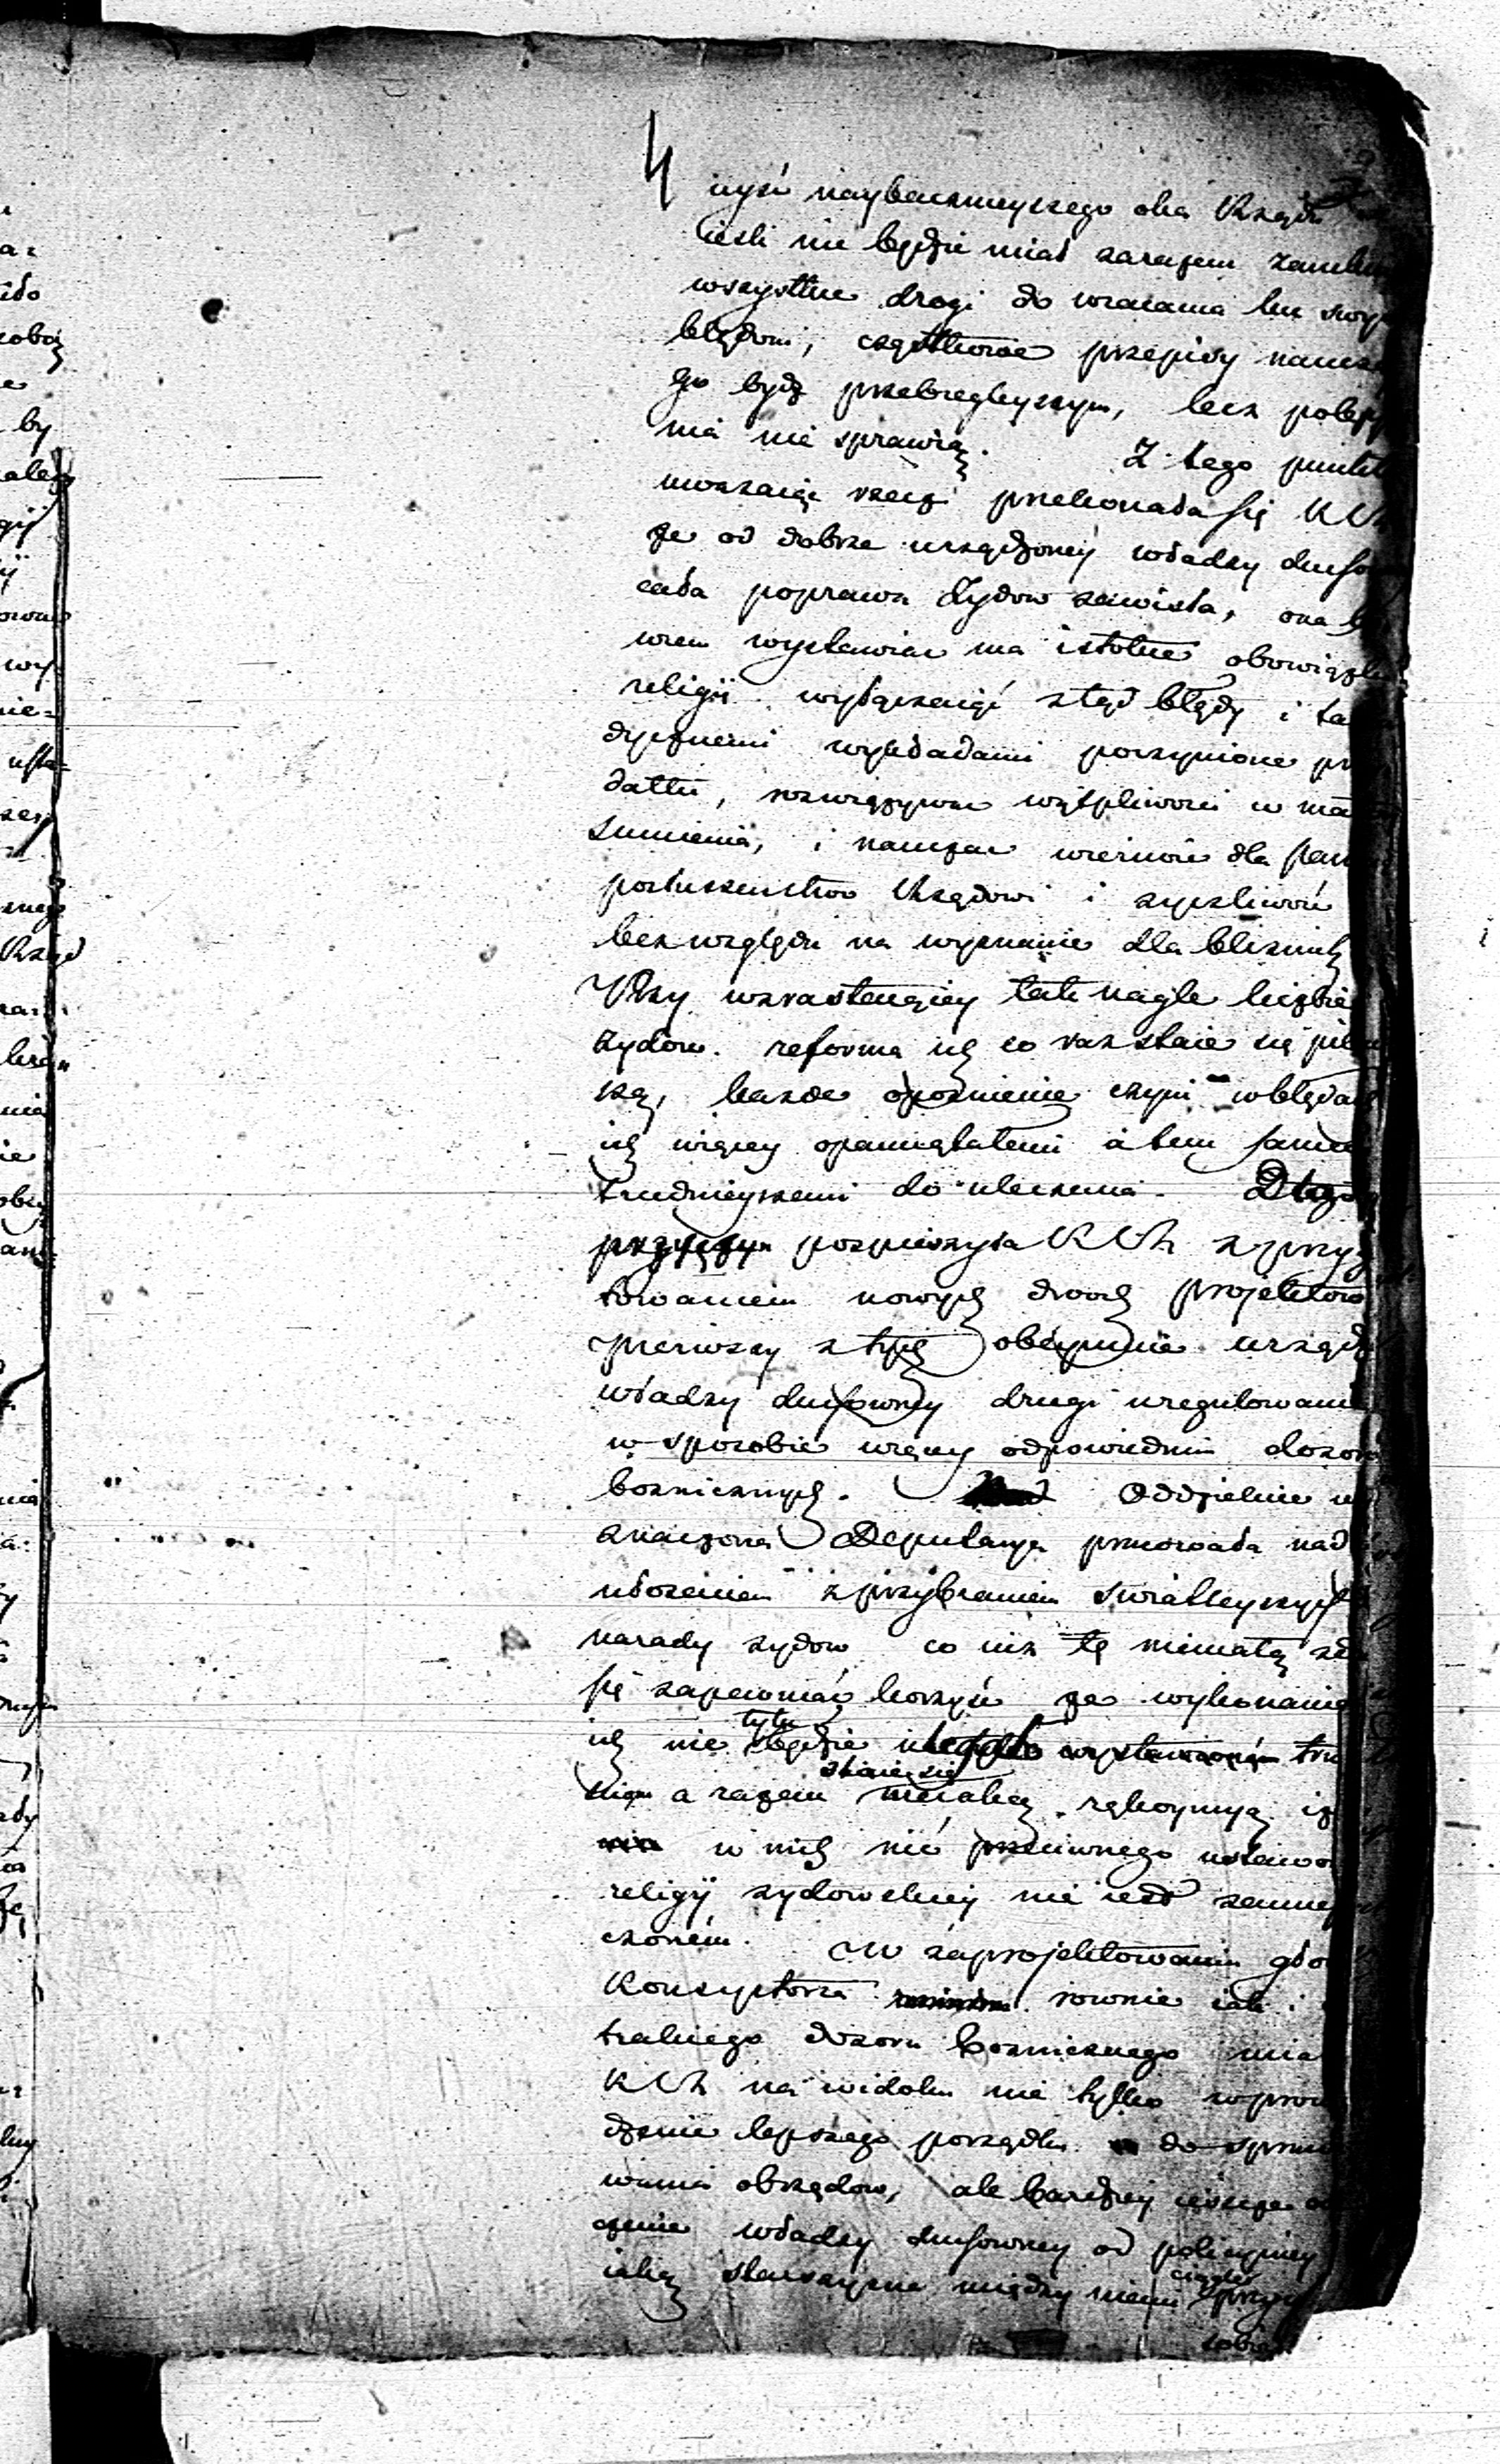 uyść naybacznieyszego oka Rządu
ieśli nie będzie miał zarazem zamkn
wszystkie drogi do wracania ku swym
błędom, cząstkowe przepisy naucz
go bydź przebiegleyszym, lecz polep
nia nie sprawią. Z tego punktu
uważaiąc rzecz przekonała się KRz
że od dobrze urządzoney władzy duchow
cała poprawa Żydow zawisła, ona
wiem wystawiać ma istotne obowiązki
religii wyłączaiąc ztąd błędy i ta
dycznemi wykładami poczynione
datki, rozwiązywać wątpliwości w ma
sumienia, i nauczać wierność dla pan
posłuszeństwo Rządowi i życzliwość
bez względu na wyznanie dla bliźnich
Przy wzrastaiącey tak nagle liczbie
żydow reforma ich co raz staie się piln
szą, każde opoznienie czyni w błędach
ich więcey opamiętałemi a tem samem
trudnieyszemi do uleczenia. Dlatego
przyczyn pospieszyła KRz z przyg
towaniem nowych dwoch projektow
pierwszy z tych obeymuie urządz
władzy duchowney drugi uregulowanie
w sposobie więcey odpowiednim dozorow
bożnicznych. Oddzielnie wy
znaczona Deputacya pracowała nad
ułożeniem z przybraniem światleyszych
narady żydow co iuż tę niemałą zda
się zapewniać korzyść że wykonanie
ich nie będzie tylu tru
a razem staie się ręko­ymią iż
w nich nic przeciwnego ustawom
religii żydowskiey nie iest zamie
czoném. W zaprojektowaniu głow
Konsystorza rownie iak i
tralnego dozoru bożnicznego miała
KRz na widoku nie tylko wprow
dzenie lepszego porządku do spraw
wania obrzędow, ale bardziey ieszcze od
czenie władzy duchowney od policyiney
iaką starszyzna między niemi ciągle przy
sobie